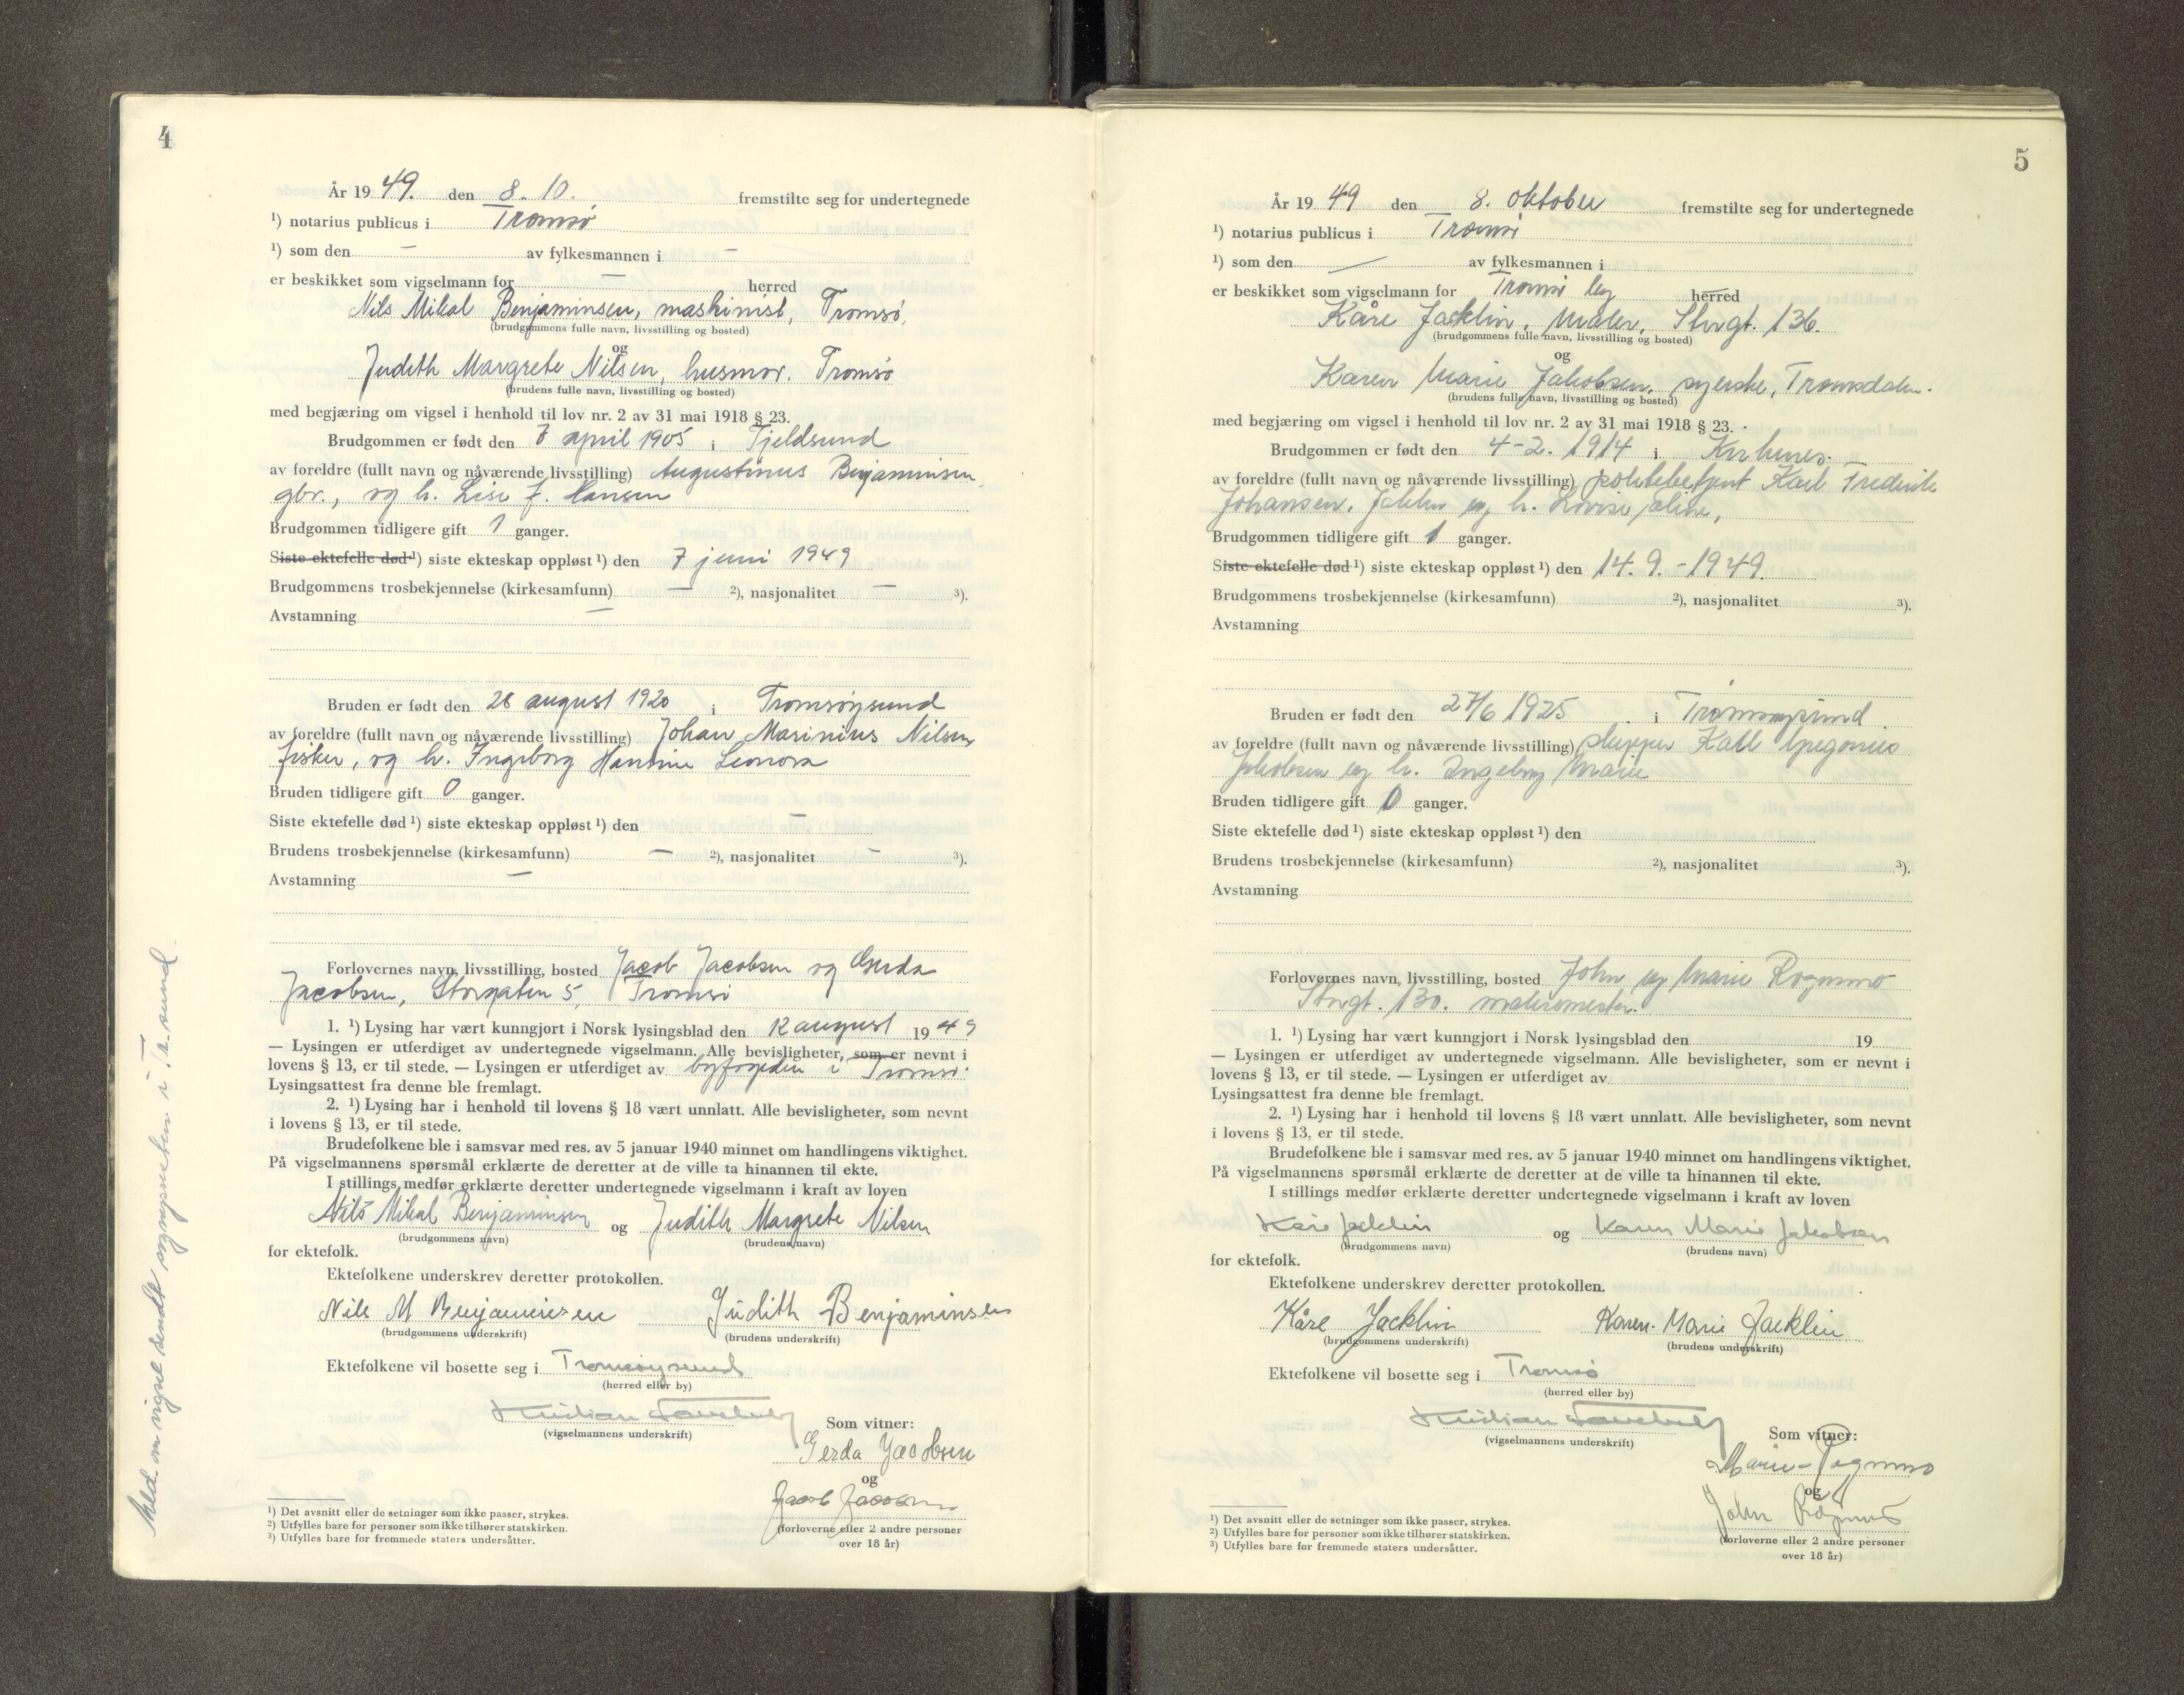 4
År 19 49. den 8. 10. fremstilte seg for undertegnede
¹) notarius publicus i Tromsø
¹) som den – av fylkesmannen i –
er beskikket som vigselmann for – herred
Nils Mikal Benjaminsen, maskinist, Tromsø.
(brudgommens fulle navn, livsstilling og bosted)
og
Judith Margrete Nilsen, husmor. Tromsø
(brudens fulle navn, livsstilling og bosted)
med begjæring om vigsel i henhold til lov nr. 2 av 31 mai 1918 § 23.
Brudgommen er født den 7 april 1905 i Tjeldsund
av foreldre (fullt navn og nåværende livsstilling) Augustinus Benjaminsen,
gbr., og h. Lise f. Hansen
Brudgommen tidligere gift 1 ganger.
Siste ektefelle død ¹) siste ekteskap oppløst ¹) den 7 juni 1949
Brudgommens trosbekjennelse (kirkesamfunn) – ²), nasjonalitet – ³).
Avstamning –
Bruden er født den 28 august 1920 i Tromsøysund
av foreldre (fullt navn og nåværende livsstilling) Johan Marinius Nilsen,
fisker, og h. Ingeborg Hansine Leonora
Bruden tidligere gift 0 ganger.
Siste ektefelle død ¹) siste ekteskap oppløst ¹) den –
Brudens trosbekjennelse (kirkesamfunn) – ²), nasjonalitet – ³).
Avstamning –
Forlovernes navn, livsstilling, bosted Jacob Jacobsen og Gerda
Jacobsen, Storgaten 5, Tromsø
1. ¹) Lysing har vært kunngjort i Norsk lysingsblad den 12 august 19 49
— Lysingen er utferdiget av undertegnede vigselmann. Alle bevisligheter, som er nevnt i
lovens § 13, er til stede. — Lysingen er utferdiget av byfogden i Tromsø.
Lysingsattest fra denne ble fremlagt.
2. ¹) Lysing har i henhold til lovens § 18 vært unnlatt. Alle bevisligheter, som nevnt
i lovens § 13, er til stede.
Brudefolkene ble i samsvar med res. av 5 januar 1940 minnet om handlingens viktighet.
På vigselmannens spørsmål erklærte de deretter at de ville ta hinannen til ekte.
I stillings medfør erklærte deretter undertegnede vigselmann i kraft av loven
Nils Mikal Benjaminsen og Judith Margrete Nilsen
(brudgommens navn) (brudens navn)
for ektefolk.
Ektefolkene underskrev deretter protokollen.
Nils M Benjaminsen Judith Benjaminsen
(brudgommens underskrift) (brudens underskrift)
Ektefolkene vil bosette seg i Tromsøysund
(herred eller by)
(vigselmannens underskrift)
Som vitner:
Gerda Jacobsen
og
Jacob Jacobsen
(forloverne eller 2 andre personer
over 18 år)
¹) Det avsnitt eller de setninger som ikke passer, strykes.
²) Utfylles bare for personer som ikke tilhører statskirken.
³) Utfylles bare for fremmede staters undersåtter.
Meld. om vigsel sendt sognepresten i T.ø.sund.
5
År 19 49 den 8. oktober fremstilte seg for undertegnede
¹) notarius publicus i Tromsø
¹) som den — av fylkesmannen i
er beskikket som vigselmann for Tromsø by herred
Kåre Jacklin, maler, Storgt. 136.
(brudgommens fulle navn, livsstilling og bosted)
og
Karen Marie Jakobsen, syerske, Tromsdalen.
(brudens fulle navn, livsstilling og bosted)
med begjæring om vigsel i henhold til lov nr. 2 av 31 mai 1918 § 23.
Brudgommen er født den 4-2. 1914 i Kirkenes.
av foreldre (fullt navn og nåværende livsstilling) politibetjent Karl Fredrik
Johansen, og h. Lovise Aline,
Brudgommen tidligere gift 1 ganger.
Siste ektefelle død ¹) siste ekteskap oppløst ¹) den 14. 9. - 1949.
Brudgommens trosbekjennelse (kirkesamfunn) ²), nasjonalitet ³).
Avstamning
Bruden er født den 27/6 1925 i Tromsøysund.
av foreldre (fullt navn og nåværende livsstilling) skipper Karl
Jakobsen og h. Ingeborg Marie
Bruden tidligere gift 0 ganger.
Siste ektefelle død ¹) siste ekteskap oppløst ¹) den
Brudens trosbekjennelse (kirkesamfunn) ²), nasjonalitet ³).
Avstamning
Forlovernes navn, livsstilling, bosted John og Marie Rognmo
Storgt. 130. malermester.
1. ¹) Lysing har vært kunngjort i Norsk lysingsblad den 19
— Lysingen er utferdiget av undertegnede vigselmann. Alle bevisligheter, som er nevnt i
lovens § 13, er til stede. — Lysingen er utferdiget av
Lysingsattest fra denne ble fremlagt.
2. ¹) Lysing har i henhold til lovens § 18 vært unnlatt. Alle bevisligheter, som nevnt
i lovens § 13, er til stede.
Brudefolkene ble i samsvar med res. av 5 januar 1940 minnet om handlingens viktighet.
På vigselmannens spørsmål erklærte de deretter at de ville ta hinannen til ekte.
I stillings medfør erklærte deretter undertegnede vigselmann i kraft av loven
Kåre Jacklin og Karen Marie Jakobsen
(brudgommens navn) (brudens navn)
for ektefolk.
Ektefolkene underskrev deretter protokollen.
Kåre Jacklin Karen-Marie Jacklin
(brudgommens underskrift) (brudens underskrift)
Ektefolkene vil bosette seg i Tromsø
(herred eller by)
(vigselmannens underskrift)
Som vitner:
Marie Rognmo
og
John Rognmo
(forloverne eller 2 andre personer
over 18 år)
¹) Det avsnitt eller de setninger som ikke passer, strykes.
²) Utfylles bare for personer som ikke tilhører statskirken.
³) Utfylles bare for fremmede staters undersåtter.